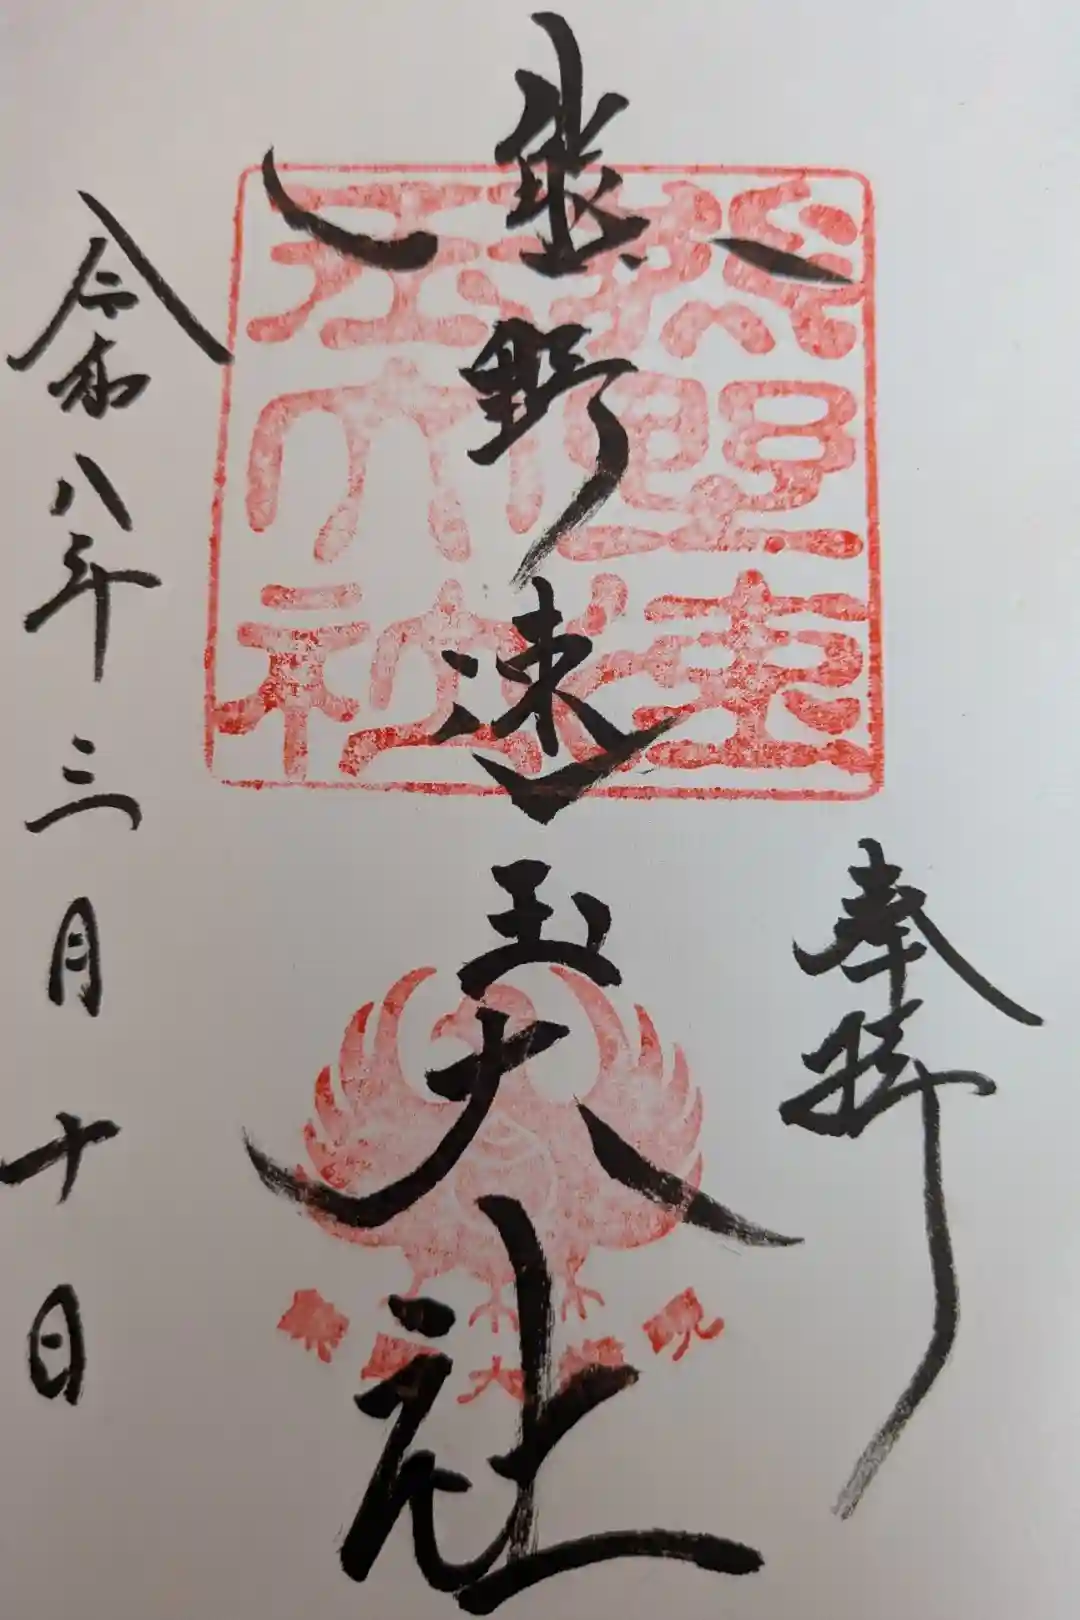 奉拝
熊野速玉大社
令和八年三月十日
熊野速
玉大社